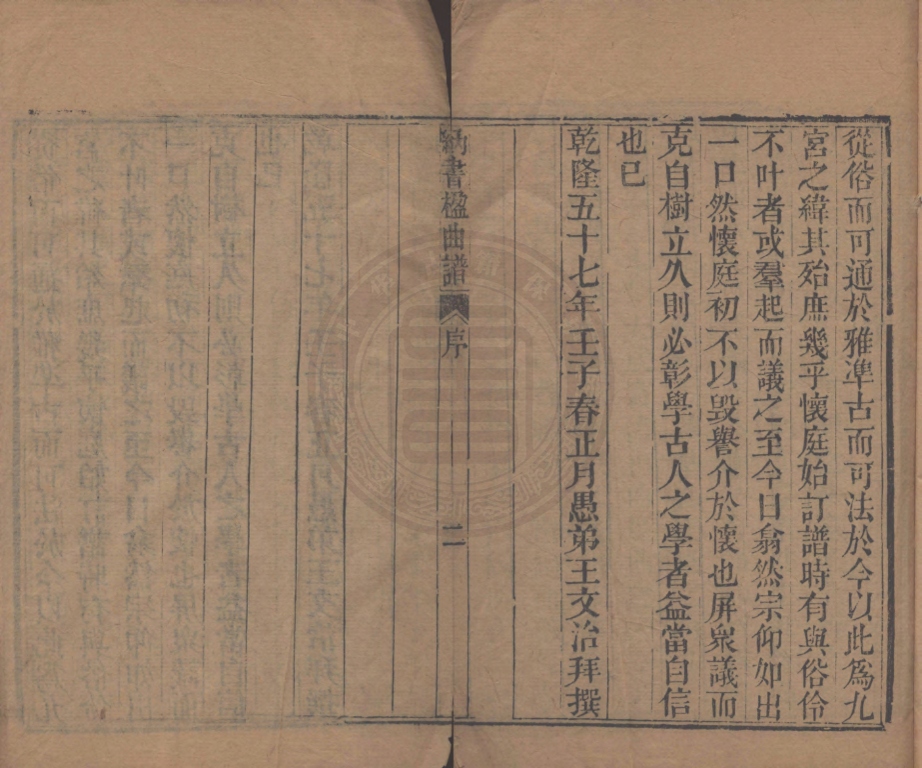 從俗而可通於雅凖古而可法於今以此爲九
宮之緯其始庶幾乎懷庭始訂譜時有與俗伶
不叶者或羣起而議之至今日翕然宗仰如出
一口然懷庭初不以毀譽介於懷也屏衆議而
克自樹立久則必彰學古人之學者益當自信
也已
乾隆五十七年壬子春正月愚弟王文治拜撰
納書楹曲譜
序
二